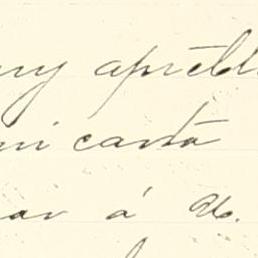 my apreble
mi carta
ar á Ud.